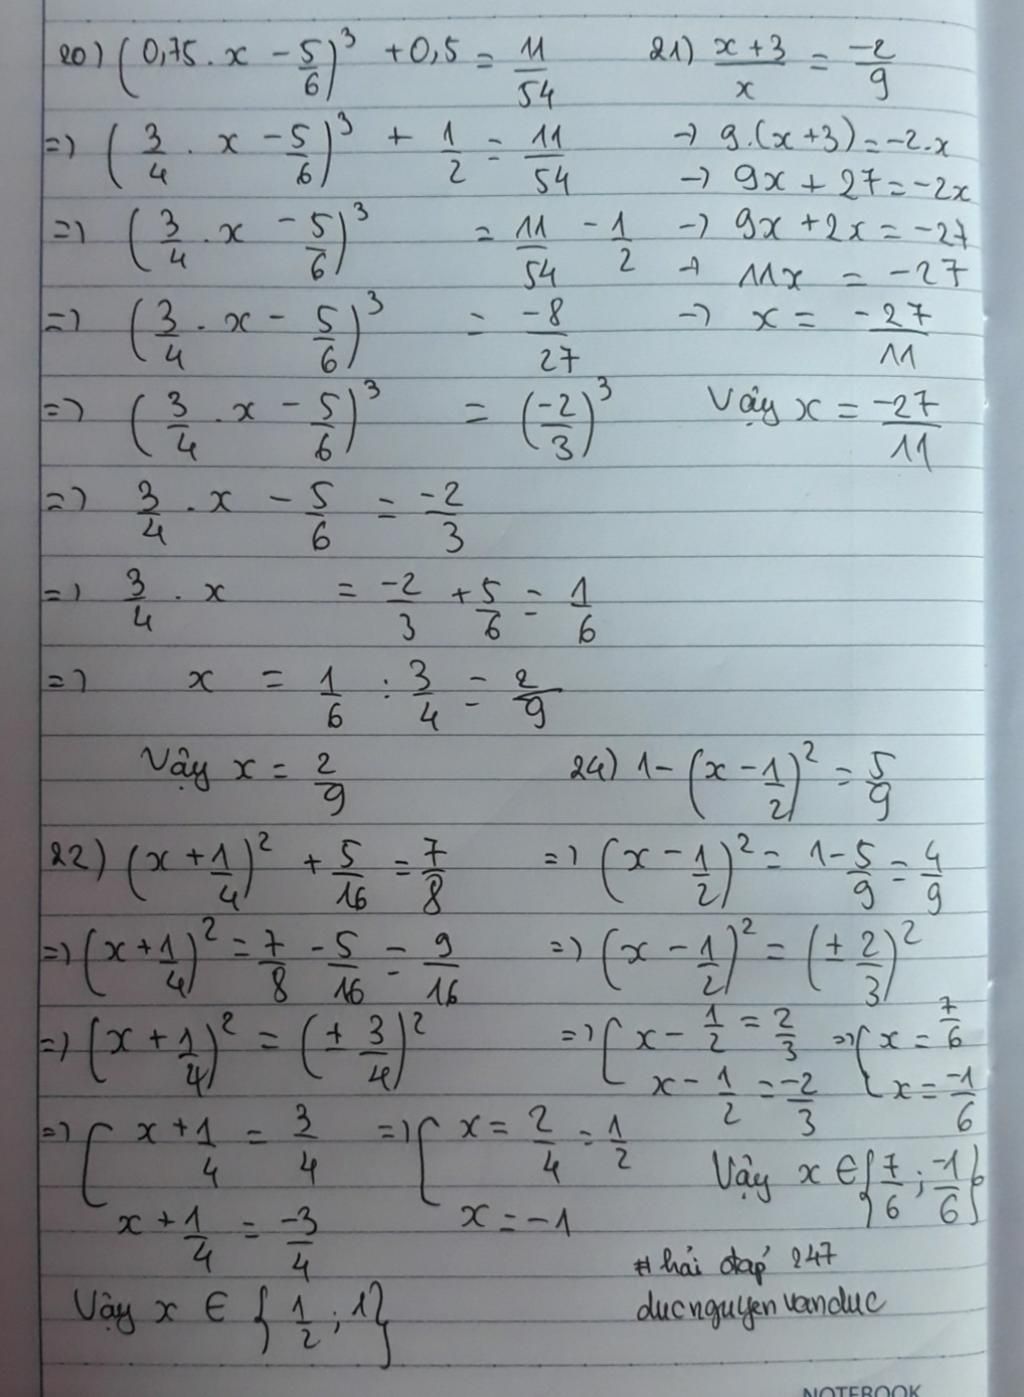 20) (0,75 . x - 5/6)³ + 0,5 = 11/54
=> (3/4 . x - 5/6)³ + 1/2 = 11/54
=> (3/4 . x - 5/6)³ = 11/54 - 1/2
=> (3/4 . x - 5/6)³ = -8/27
=> (3/4 . x - 5/6)³ = (-2/3)³
=> 3/4 . x - 5/6 = -2/3
=> 3/4 . x = -2/3 + 5/6 = 1/6
=> x = 1/6 : 3/4 = 2/9
Vậy x = 2/9
21) x+3/x = -2/9
-> 9.(x+3) = -2.x
-> 9x + 27 = -2x
-> 9x + 2x = -27
-> 11x = -27
-> x = -27/11
Vậy x = -27/11
22) (x + 1/4)² + 5/16 = 7/8
=> (x + 1/4)² = 7/8 - 5/16 = 9/16
=> (x + 1/4)² = (± 3/4)²
=> [ x + 1/4 = 3/4 => [ x = 2/4 = 1/2
x + 1/4 = -3/4 x = -1
Vậy x ∈ {1/2 ; 1}
24) 1 - (x - 1/2)² = 5/9
=> (x - 1/2)² = 1 - 5/9 = 4/9
=> (x - 1/2)² = (± 2/3)²
=> [ x - 1/2 = 2/3 => [ x = 7/6
x - 1/2 = -2/3 x = -1/6
Vậy x ∈ {7/6 ; -1/6}
# hỏi đáp 247
ducnguyenvanduc
NOTEBOOK